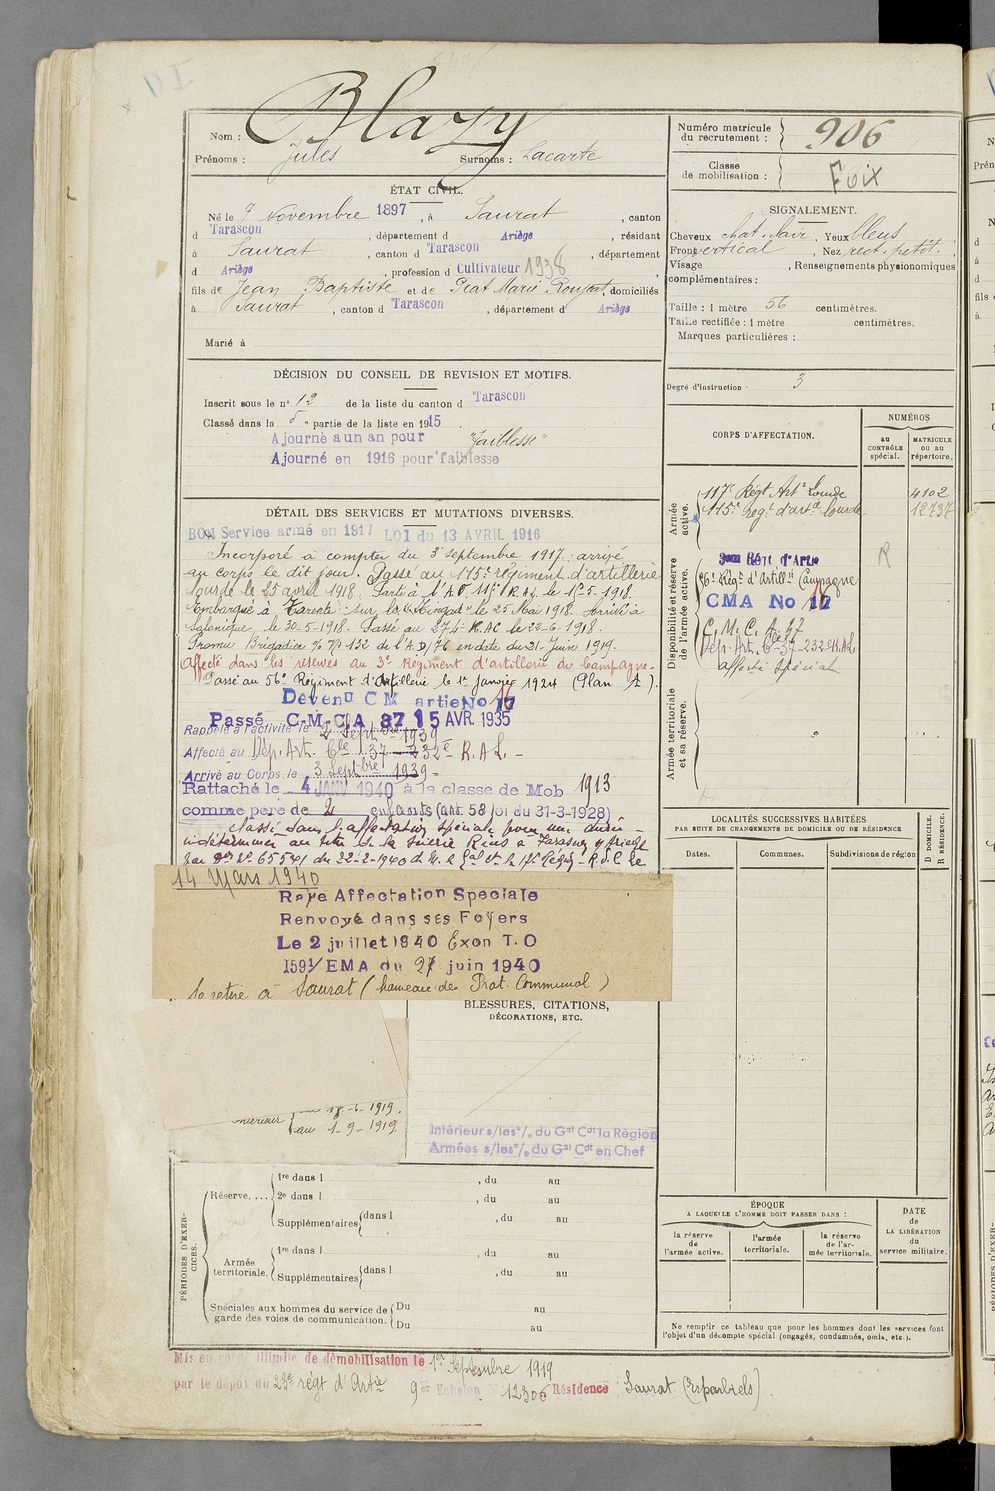 Nom : Blazy
Prénoms : Jules Surnoms : Lacarte
Numéro matricule du recrutement : 906
Classe de mobilisation : Foix
ÉTAT CIVIL.
Né le 7 Novembre 1897, à Saurat, canton
d Tarascon, département d Ariège, résidant
à Saurat, canton d Tarascon, département
d Ariège, profession d Cultivateur 1938
fils de Jean Baptiste et de Prat Marie, domiciliés
à Saurat, canton d Tarascon, département d Ariège
Marié à
SIGNALEMENT.
Cheveux chat. clair, Yeux bleus
Front vertical, Nez rect. petit.
Visage , Renseignements physionomiques
complémentaires :
Taille : 1 mètre 56 centimètres.
Taille rectifiée : 1 mètre centimètres.
Marques particulières :
Degré d'instruction. 3
DÉCISION DU CONSEIL DE REVISION ET MOTIFS.
Inscrit sous le n° 12 de la liste du canton d Tarascon
Classé dans la 5e partie de la liste en 1915.
Ajourné à un an pour "faiblesse"
Ajourné en 1916 pour faiblesse
DÉTAIL DES SERVICES ET MUTATIONS DIVERSES.
BON Service armé en 1917 LOI du 13 AVRIL 1916
Incorporé à compter du 3 septembre 1917, arrivé
au corps le dit jour. Passé au 115e régiment d'artillerie
lourde le 25 avril 1918. Parti à l'A O 117e R.A.L. le 1-5-1918.
Embarqué à Tarente sur le le 25 Mai 1918. Arrivé à
Salonique le 30-5-1918. Passé au 274e R.A.C le 22-6-1918.
Promu Brigadier 132 de l'A.D/76 en date du 21 Juin 1919.
Affecté dans les réserves au 3e Régiment d'artillerie de Campagne.
Passé au 56e Régiment d'Artillerie le 1er Janvier 1924 (Plan A).
Devenu C M artie No 17 16
Passé C-M-C-A 87 15 AVR. 1935
Rappelé à l'activité le 2 Septbre 1939
Affecté au Dép. Art. 37 - 232e R.A.L. -
Arrivé au Corps le 3 Septbre 1939 -
Rattaché le 4 JANV 1940 à la classe de Mob 1913
comme père de 2 enfants (art 58 loi du 31-3-1928)
classé dans l'affectation spéciale pour une durée
indéterminée au titre de la à Tarascon s/Ariège
14 Mars 1940
Raye Affectation Speciale
Renvoyé dans ses Foyers
Le 2 juillet 1940 Exon T.O
1591/EMA du 27 juin 1940
se retire à Saurat (hameau de Prat Communal)
BLESSURES, CITATIONS,
DÉCORATIONS, ETC.
Intérieur
au 1-9-1919.
Intérieur s/les °/. du Gal Cdt la Région
Armées s/les °/. du Gal Cdt en Chef
CORPS D'AFFECTATION.
NUMÉROS
au CONTRÔLE spécial.
MATRICULE ou au répertoire.
Armée active.
117e Régt Artie Lourde 4102
115e régt d'artie lourde 12737
Disponibilité et réserve de l'armée active.
3me Régt d'Artie
56e Régt d'Artillie Campagne
CMA No 17 16
C.M.C.A. 87
Dép. Art. 37-232e R.A.L
affecté spécial
R
Armée territoriale et sa réserve.
LOCALITÉS SUCCESSIVES HABITÉES
PAR SUITE DE CHANGEMENTS DE DOMICILE OU DE RÉSIDENCE
Dates. Communes. Subdivisions de région
D DOMICILE. R RÉSIDENCE.
PÉRIODES D'EXERCICES.
Réserve....
1re dans l , du au
2e dans l , du au
Supplémentaires dans l , du au
Armée territoriale.
1re dans l , du au
Supplémentaires dans l , du au
Spéciales aux hommes du service de garde des voies de communication.
Du au
Du au
ÉPOQUE
A LAQUELLE L'HOMME DOIT PASSER DANS :
la réserve de l'armée active.
l'armée territoriale.
la réserve de l'armée territoriale.
DATE de LA LIBÉRATION du service militaire.
Ne remplir ce tableau que pour les hommes dont les services font
l'objet d'un décompte spécial (engagés, condamnés, omis, etc.).
Mis en congé illimité de démobilisation le 1er Septembre 1919
par le dépôt du 23e régt d'Artie 9e Echelon N° 12306 Résidence : Saurat